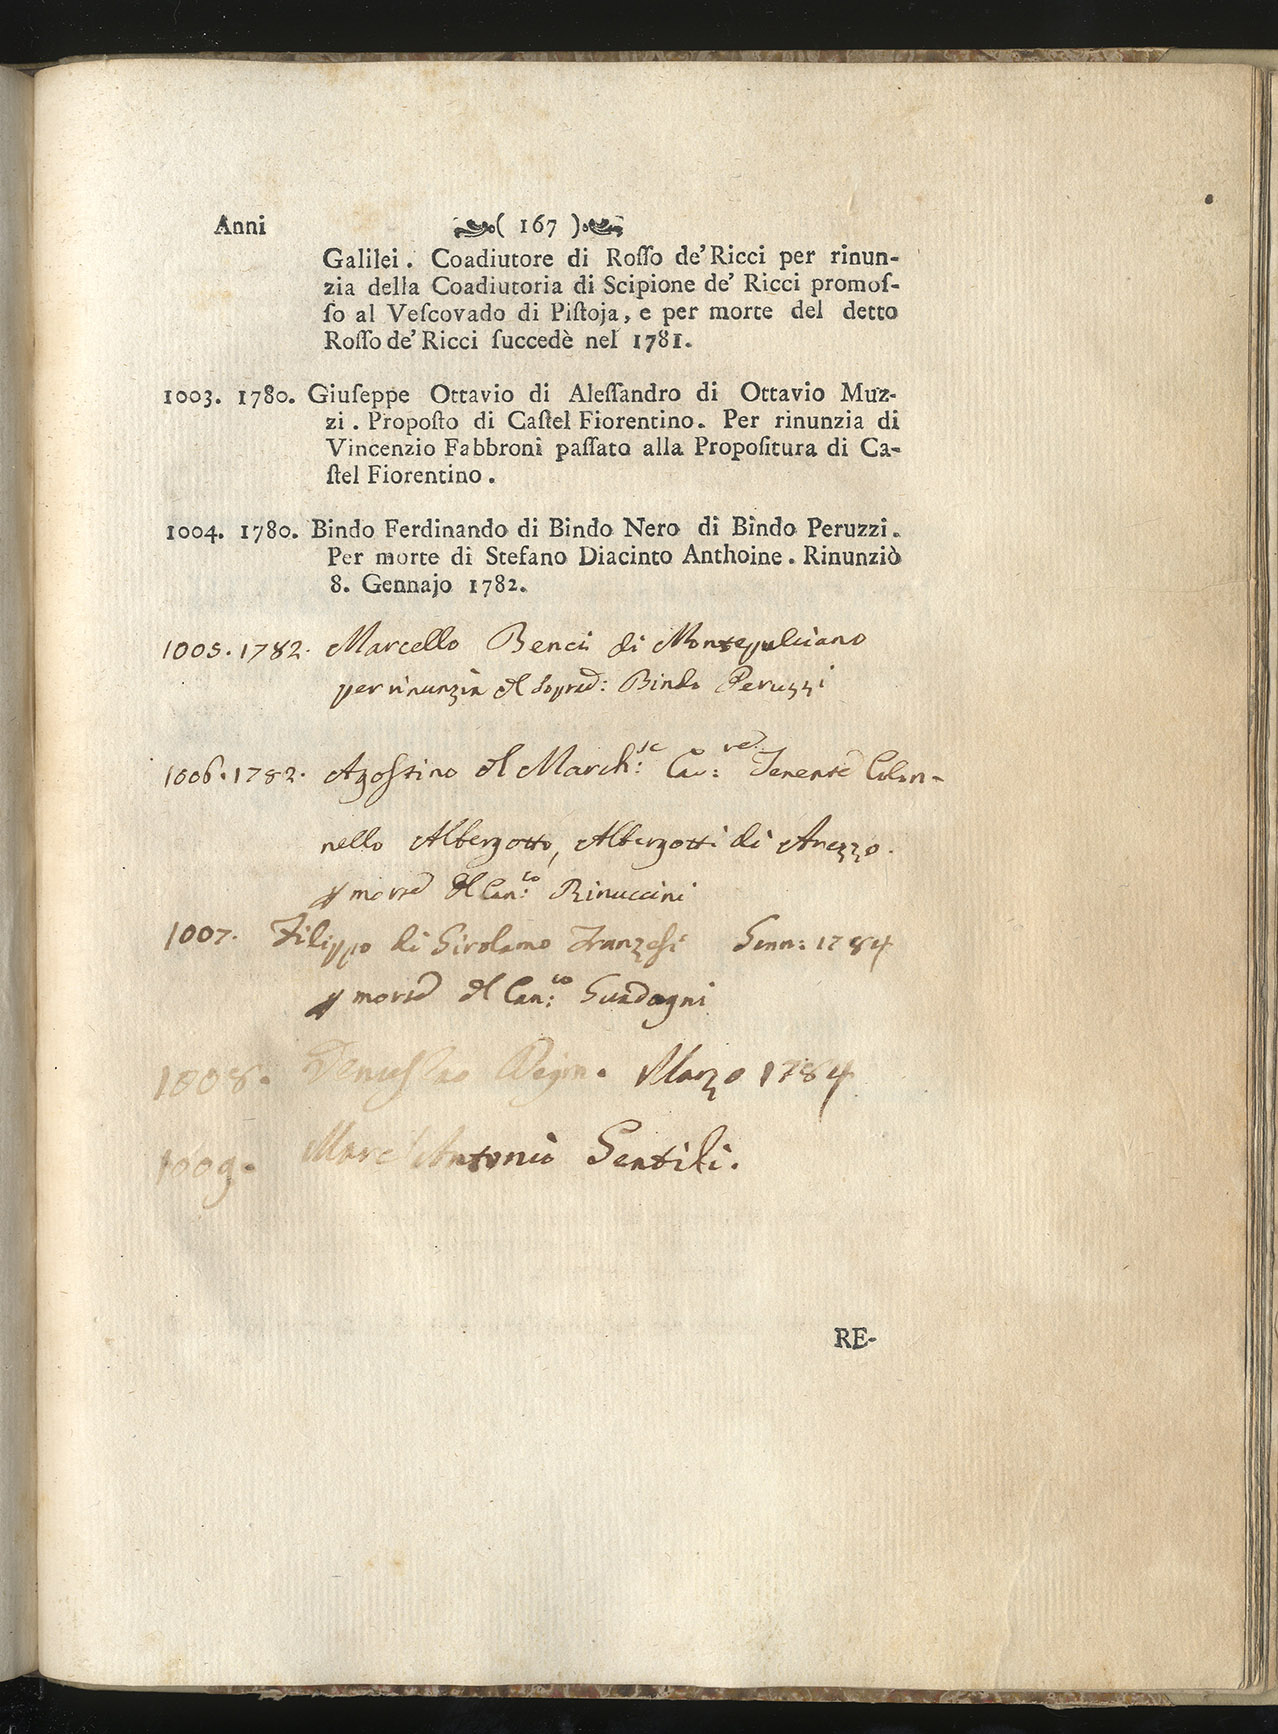 Anni ( 167 )
Galilei. Coadiutore di Roſſo de' Ricci per rinun-
zia della Coadiutoria di Scipione de' Ricci promoſ-
ſo al Veſcovado di Piſtoja, e per morte del detto
Roſſo de' Ricci ſuccedè nel 1781.
1003. 1780. Giuſeppe Ottavio di Aleſſandro di Ottavio Muz-
zi. Propoſto di Caſtel Fiorentino. Per rinunzia di
Vincenzio Fabbroni paſſato alla Propoſitura di Ca-
ſtel Fiorentino.
1004. 1780. Bindo Ferdinando di Bindo Nero di Bindo Peruzzi.
Per morte di Stefano Diacinto Anthoine. Rinunziò
8. Gennajo 1782.
1005. 1782. Marcello Benci di Montepulciano
per rinunzia del soprad: Bindo Peruzzi
1006. 1782. Agostino del March:se Cav: Tenente Colon-
nello Albergotto, Albergotti di Arezzo.
p morte del Can:co Rinuccini
1007. Filippo di Girolamo Franzesi Genn: 1784
p morte del Can:co Guadagni
1008. Marzo 1784
1009. Marc Antonio Gentili.
RE-